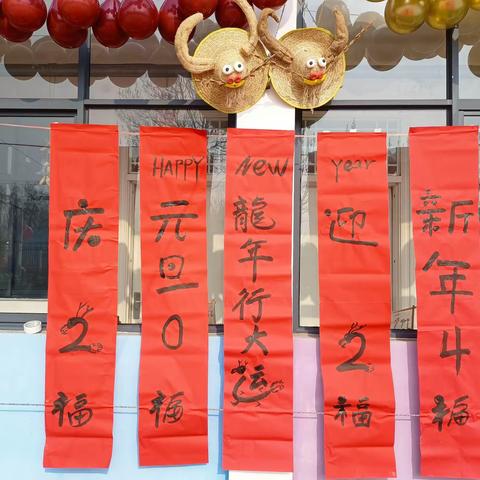 HAPPY New Year
庆元旦
龍年行大运
迎新年
2 0 2 4
福 福 福 福